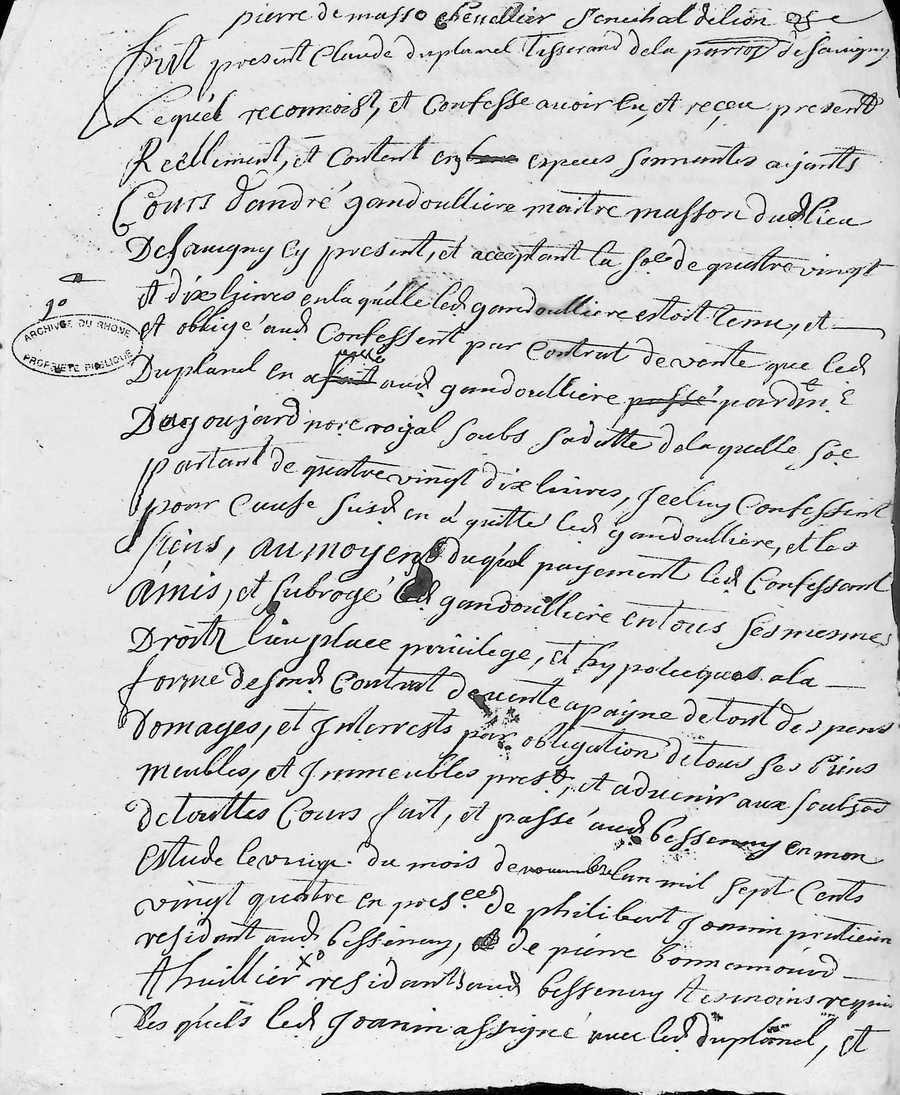 pierre de masso chevallier senechal de lion
fut present Claude duplanel tisserand de la parroisse de savigny
Lequel reconnoist, et Confesse avoir eu, et reçeu presentt
Reellement, et Contant en especes sonnantes ayants
Cours d'andré gandoulliere maitre masson dud lieu
De savigny cy present, et acceptant la soe de quattre vingt
et dix livres en laquelle led gandoulliere estoit tenu, et
et obligé aud Confessent par Contrat de vente que led
Duplanel en a passé aud gandoulliere pardt me
Dugoujard nore royal soubs sa datte de laquelle soe
partant de quattre vingt dix livres, Jceluy Confessent
pour Cause susd en a quitté led gandoulliere, et les
siens, au moyen duquel payement led Confessant
a mis, et subrogé led gandoulliere en tous ses mesmes
Droits lieu place privilege, et hypotecques a la
forme de sond Contrat de vente a payne de tout despens
Domages, et Jnterrests par obligation de tous ses biens
meubles, et Jmmeubles prests, et advenir aux soubsons
de touttes Cours fait, et passé aud bessenay en mon
Estude le vingt du mois de novembre l'an mil sept Cents
vingt quattre en presces de philibert Joanin praticien
residant aud bessenay, de pierre bonnamourd
thuillier residant aud bessenay tesmoins requis
Lesquels led Joanin a signé avec led duplanel, et
1º
ARCHIVES DU RHONE
PROPRIETE PUBLIQUE